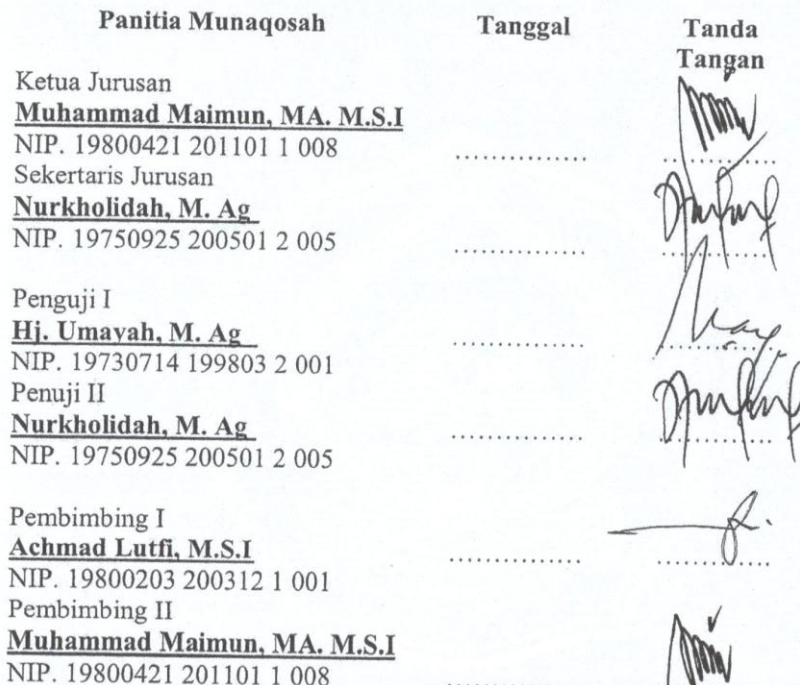 Panitia Munaqosah Tanggal Tanda
Tangan
Ketua Jurusan
Muhammad Maimun, MA. M.S.I
NIP. 19800421 201101 1 008 .................. ................
Sekertaris Jurusan
Nurkholidah, M. Ag
NIP. 19750925 200501 2 005 .................. ................
Penguji I
Hj. Umayah, M. Ag
NIP. 19730714 199803 2 001 .................. ................
Penuji II
Nurkholidah, M. Ag
NIP. 19750925 200501 2 005 .................. ................
Pembimbing I
Achmad Lutfi, M.S.I
NIP. 19800203 200312 1 001 .................. ................
Pembimbing II
Muhammad Maimun, MA. M.S.I
NIP. 19800421 201101 1 008 ..................